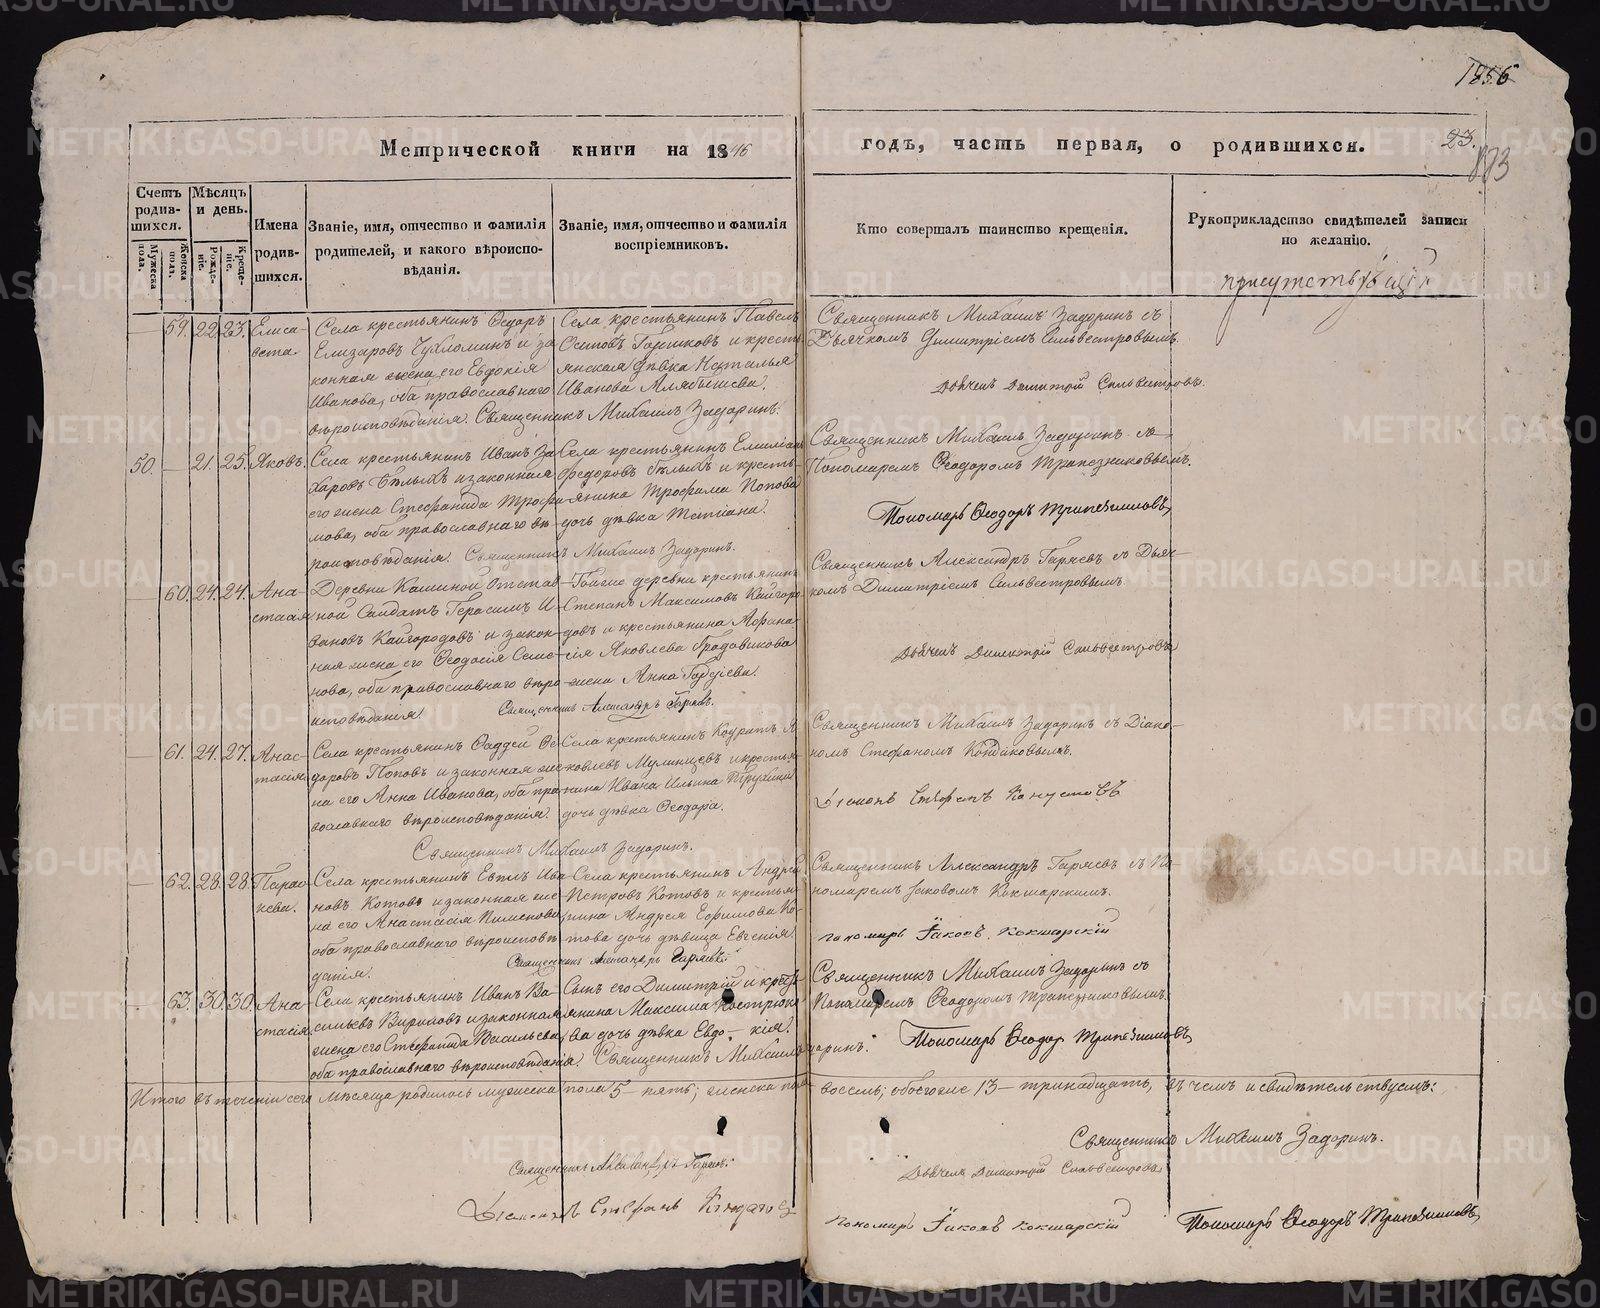 1856
Метрической книги на 1846 годъ, часть первая, о родившихся.
23.
Счетъ родив- шихся.
Мужеска пола.
Женска пола.
Мѣсяцъ и день.
Рожде- ніе.
Креще- ніе.
Имена родив- шихся.
Званіе, имя, отчество и фамилія
родителей, и какого вѣроиспо-
вѣданія.
Званіе, имя, отчество и фамилія
воспріемниковъ.
Кто совершалъ таинство крещенія.
Рукоприкладство свидѣтелей записи
по желанію.
59. 22. 23. Елиса-
вета.
Села крестьянинъ Ѳедоръ
Елизаровъ Чухломинъ и за-
конная жена его Евдокія
Иванова, оба православнаго
вѣроисповѣданія. Священникъ Михаилъ Задоринъ.
Села крестьянинъ Павелъ
Осиповъ и кресть-
янская дѣвка Наталья
Иванова
Священникъ Михаилъ Задоринъ съ
Дьячкомъ Димитріемъ Сильвестровымъ.
Дьячекъ Димитрій Сильвестровъ.
50. 21. 25. Яковъ.
Села крестьянинъ Иванъ За-
харовъ Бѣлыхъ и законная
его жена Стефанида Трофи-
мова, оба православнаго вѣ-
роисповѣданія. Священникъ Михаилъ Задоринъ.
Села крестьянинъ Емиліанъ
Федоровъ Бѣлыхъ и кресть-
янина Трофима Попова
дочь дѣвка Татіана.
Священникъ Михаилъ Задоринъ съ
Пономаремъ Ѳеодоромъ Трапезниковымъ.
Пономарь Ѳеодоръ Трапезниковъ
60. 24. 24. Ана-
стасія
Деревни Кашиной отстав-
ной Солдатъ Герасимъ И-
вановъ Кайгородовъ и закон-
ная жена его Ѳеодосія Семе-
нова, оба православнаго вѣро-
исповѣданія.
Священникъ Александръ Гаряевъ.
Тояже деревни крестьянинъ
Степанъ Максимовъ Кайгоро-
довъ и крестьянина Афана-
сія Яковлева
жена Анна
Священникъ Александръ Гаряевъ съ Дьяч-
комъ Димитріемъ Сильвестровымъ
Дьячекъ Димитрій Сильвестровъ
61. 24. 27. Анас-
тасія
Села крестьянинъ Ѳаддей Ѳе-
доровъ Поповъ и законная же-
на его Анна Иванова, оба пра-
вославнаго вѣроисповѣданія.
Священникъ Михаилъ Задоринъ.
Села крестьянинъ Кодратъ Я-
ковлевъ и крестья-
нина Ивана Ильина
дочь дѣвка Ѳеодора.
Священникъ Михаилъ Задоринъ съ Діако-
номъ Стефаномъ
Діаконъ Стефанъ
62. 28. 28. Парас-
кева.
Села крестьянинъ Ива-
новъ Котовъ и законная же-
на его Анастасія Пименова,
оба православнаго вѣроисповѣ-
данія.
Священникъ Александръ Гаряевъ
Села крестьянинъ Андрей
Петровъ Котовъ и крестья-
нина Андрея Ефимова Ко-
това дочь дѣвица Евгенія.
Священникъ Александръ Гаряевъ съ По-
номаремъ Іаковомъ Кокшарскимъ.
Пономарь Іаковъ Кокшарскій
63. 30. 30. Ана-
стасія.
Села крестьянинъ Иванъ Ва-
сильевъ и законная
жена его Стефанида Васильева,
оба православнаго вѣроисповѣданія. Священникъ Михаилъ Задоринъ.
Сынъ его Димитрій и кресть-
янина Максима
дочь дѣвка Евдо- кія.
Священникъ Михаилъ Задоринъ съ
Пономаремъ Ѳеодоромъ Трапезниковымъ.
Пономарь Ѳеодоръ Трапезниковъ
Итого въ теченіи сего мѣсяца родилось мужеска пола 5 - пять; женска пола восемь; обоегоже 13 - тринадцать, въ чемъ и свидѣтельствуемъ:
Священникъ Михаилъ Задоринъ.
Священникъ Александръ Гаряевъ.
Дьячекъ Димитрій Сильвестровъ
Діаконъ Стефанъ
Пономарь Іаковъ Кокшарскій
Пономарь Ѳеодоръ Трапезниковъ
METRIKI.GASO-URAL.RU